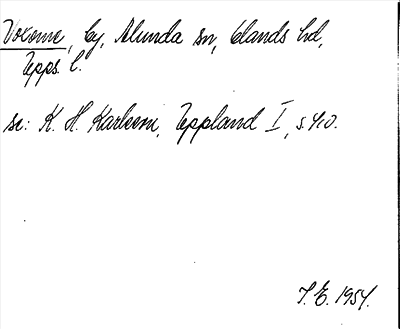 Voxome, by, Alunda sn, Olands hd,
Upps. l.
se: K. H. Karlsson, Uppland I, s. 40.
I. E. 1954.